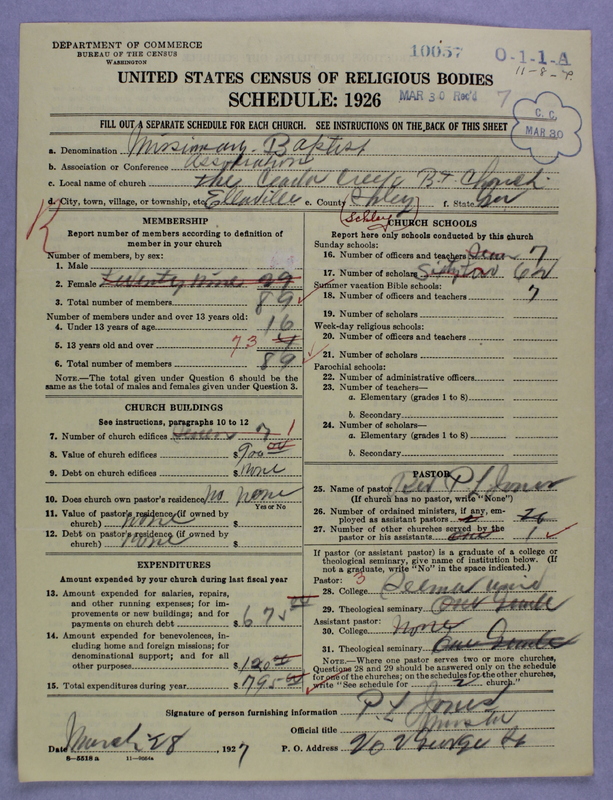 DEPARTMENT OF COMMERCE
BUREAU OF THE CENSUS
WASHINGTON
10057 O-1-1-A
11-8-
UNITED STATES CENSUS OF RELIGIOUS BODIES
SCHEDULE: 1926
MAR 30 Rec'd 7
C. C.
MAR 30
FILL OUT A SEPARATE SCHEDULE FOR EACH CHURCH. SEE INSTRUCTIONS ON THE BACK OF THIS SHEET
a. Denomination Missionary Baptist
b. Association or Conference Association
c. Local name of church the Ceador Creek Bt Church
d. City, town, village, or township, etc. Ellaville e. County Shley f. State
(Schley)
MEMBERSHIP
Report number of members according to definition of member in your church
Number of members, by sex:
1. Male
2. Female twenty nine 29
3. Total number of members 89
Number of members under and over 13 years old:
4. Under 13 years of age 16
5. 13 years old and over 73
6. Total number of members 89
NOTE.—The total given under Question 6 should be the
same as the total of males and females given under Question 3.
CHURCH BUILDINGS
See instructions, paragraphs 10 to 12
7. Number of church edifices Seven 7 1
8. Value of church edifices $ 900.00
9. Debt on church edifices $ None
10. Does church own pastor's residence? No none
Yes or No
11. Value of pastor's residence (if owned by
church) none $
12. Debt on pastor's residence (if owned by
church) none $
EXPENDITURES
Amount expended by your church during last fiscal year
13. Amount expended for salaries, repairs,
and other running expenses; for im-
provements or new buildings; and for
payments on church debt $ 675
14. Amount expended for benevolences, in-
cluding home and foreign missions; for
denominational support; and for all
other purposes $ 120.00
15. Total expenditures during year $ 795.00
CHURCH SCHOOLS
Report here only schools conducted by this church
Sunday schools:
16. Number of officers and teachers Seven 7
17. Number of scholars Sixty two 62
Summer vacation Bible schools:
18. Number of officers and teachers 7
19. Number of scholars
Week-day religious schools:
20. Number of officers and teachers
21. Number of scholars
Parochial schools:
22. Number of administrative officers
23. Number of teachers—
a. Elementary (grades 1 to 8)
b. Secondary
24. Number of scholars—
a. Elementary (grades 1 to 8)
b. Secondary
PASTOR
25. Name of pastor Rev P L Jones
(If church has no pastor, write "None")
26. Number of ordained ministers, if any, em-
ployed as assistant pastors
27. Number of other churches served by the
pastor or his assistants one 1
If pastor (or assistant pastor) is a graduate of a college or
theological seminary, give name of institution below. (If
not a graduate, write "No" in the space indicated.)
Pastor: 3
28. College Selma
29. Theological seminary
Assistant pastor:
30. College None
31. Theological seminary
NOTE.—Where one pastor serves two or more churches,
Questions 28 and 29 should be answered only on the schedule
for one of the churches; on the schedules for the other churches,
write "See schedule for 2 church."
Signature of person furnishing information P L Jones
Official title Minister
Date March 28, 1927 P. O. Address George St
8—5518 a 11—9664a